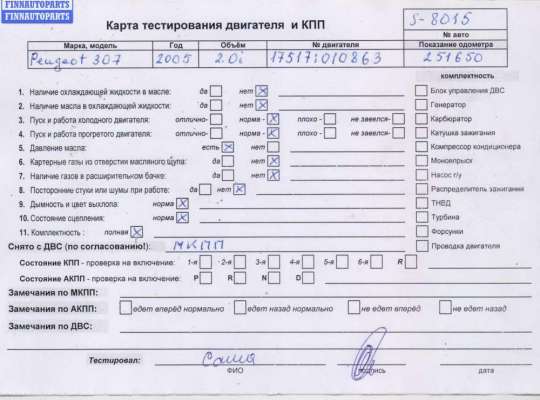 FINNAUTOPARTS
FINNAUTOPARTS
Карта тестирования двигателя и КПП
S-8015
№ авто
Марка, модель Год Объём № двигателя Показание одометра
Peugeot 307 2005 2.0i 17517i010863 251650
комплектность
1. Наличие охлаждающей жидкости в масле: да нет X Блок управления ДВС
2. Наличие масла в охлаждающей жидкости: да нет X Генератор
3. Пуск и работа холодного двигателя: отлично- норма - X плохо - не завелся- Карбюратор
4. Пуск и работа прогретого двигателя: отлично- норма - X плохо - не завелся- Катушка зажигания
5. Давление масла: есть X нет Компрессор кондиционера
6. Картерные газы из отверстии масляного щупа: да нет X Моновпрыск
7. Наличие газов в расширительном бачке: да нет X Насос г/у
8. Посторонние стуки или шумы при работе: да нет X Распределитель зажигания
9. Дымность и цвет выхлопа: норма X ТНВД
10. Состояние сцепления: норма X Турбина
11. Комплектность : полная X Форсунки
Снято с ДВС (по согласованию!): МКПП Проводка двигателя
Состояние КПП - проверка на включение: 1-я 2-я 3-я 4-я 5-я 6-я R
Состояние АКПП - проверка на включение: P R N D
Замечания по МКПП:
Замечания по АКПП: едет вперёд нормально едет назад нормально не едет вперёд не едет назад
Замечания по ДВС:
Тестировал: Саша
ФИО подпись дата